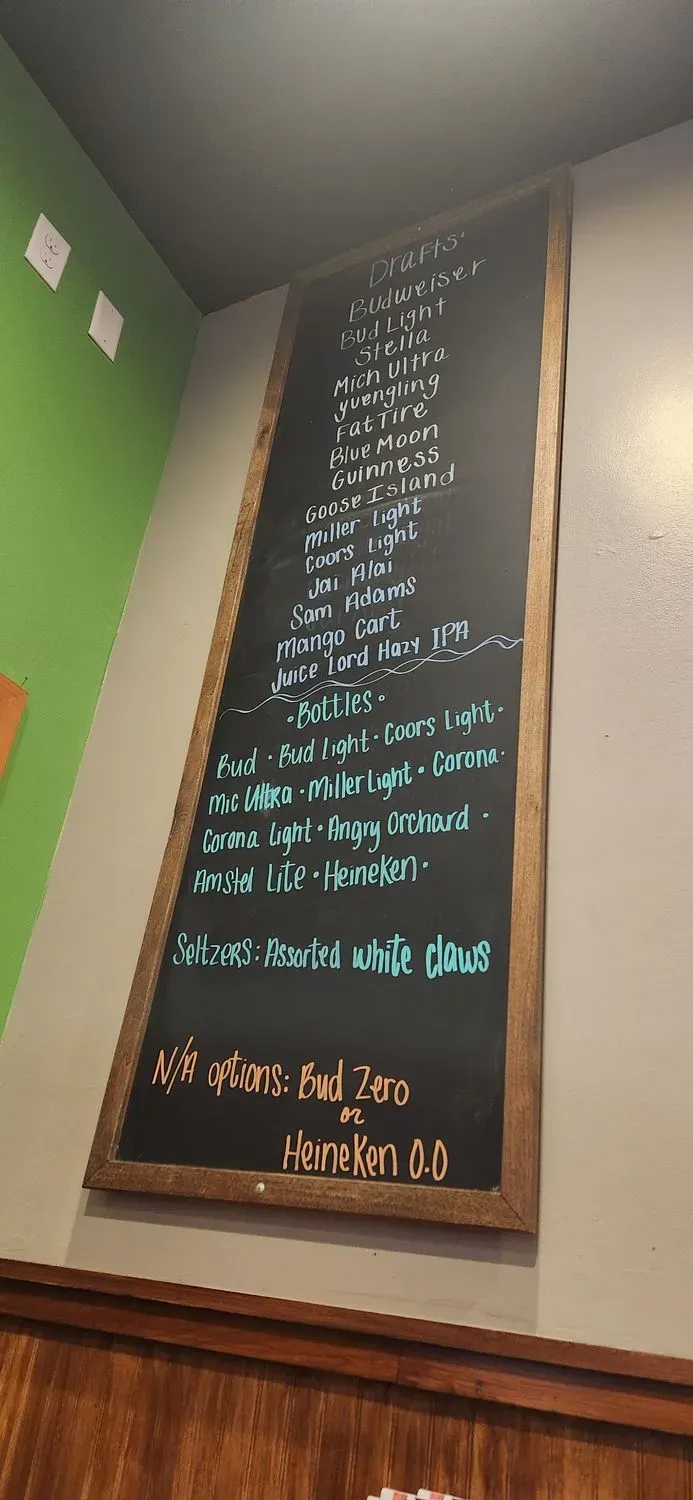 Drafts:
Budweiser
Bud Light
Stella
Mich Ultra
yuengling
Fat Tire
Blue Moon
Guinness
Goose Island
Miller Light
Coors Light
Jai Alai
Sam Adams
Mango Cart
Juice Lord Hazy IPA
•Bottles•
Bud • Bud Light • Coors Light •
Mic Ultra • Miller Light • Corona •
Corona Light • Angry Orchard •
Amstel Lite • Heineken •
Seltzers: Assorted white claws
N/A options: Bud Zero
or
Heineken 0.0